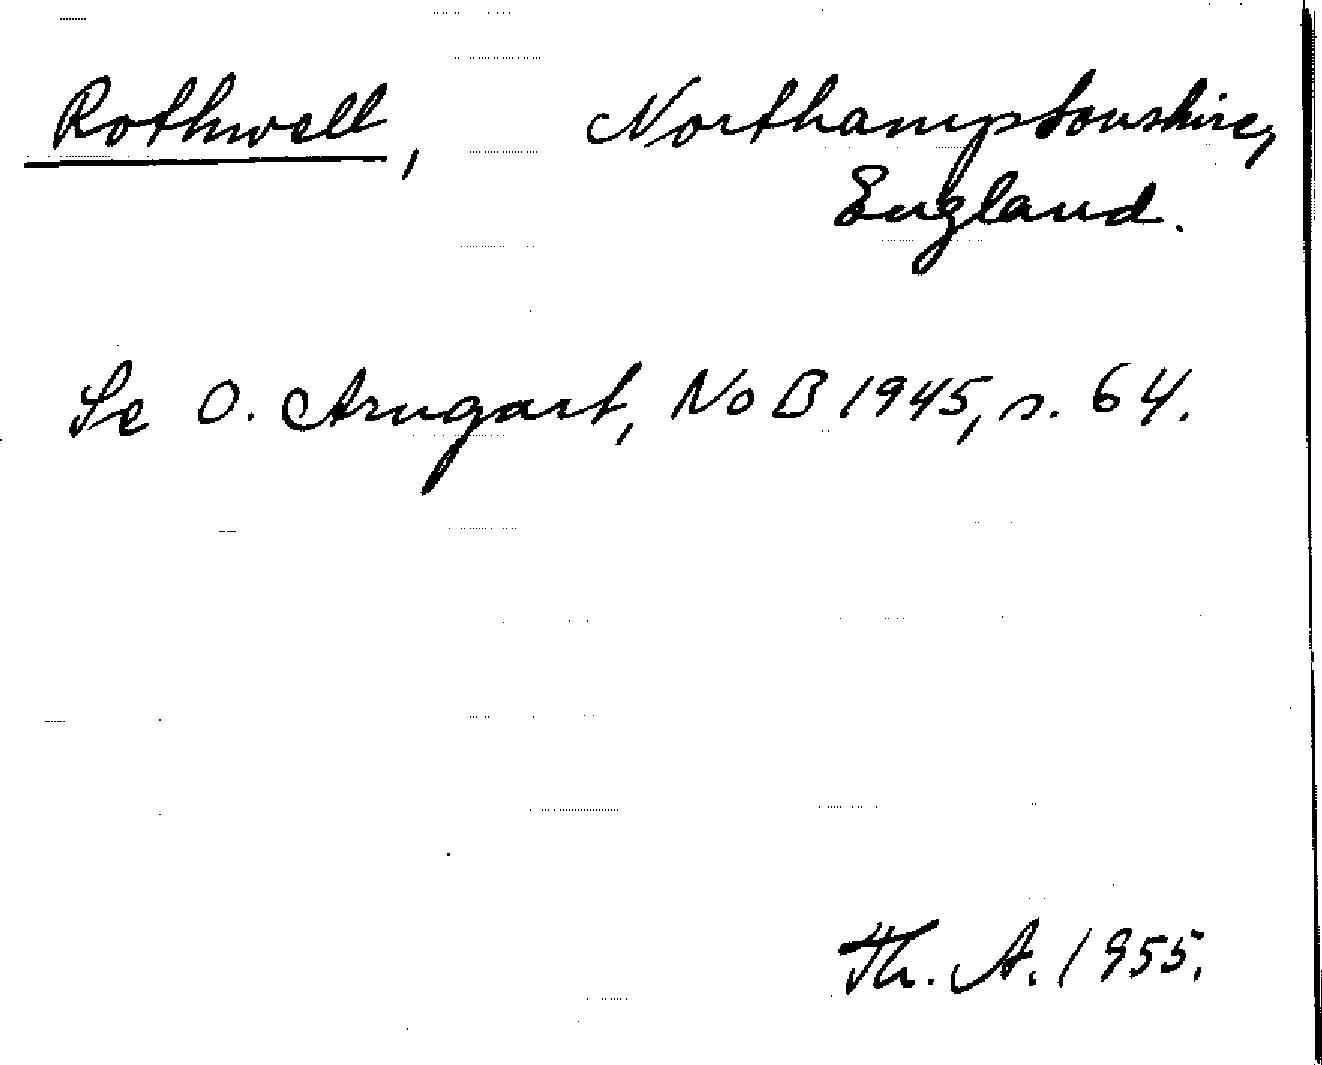 Rothwell, Northamptonshire,
England.
Se O. Arngart, NoB 1945, s. 64.
Th. A. 1955.